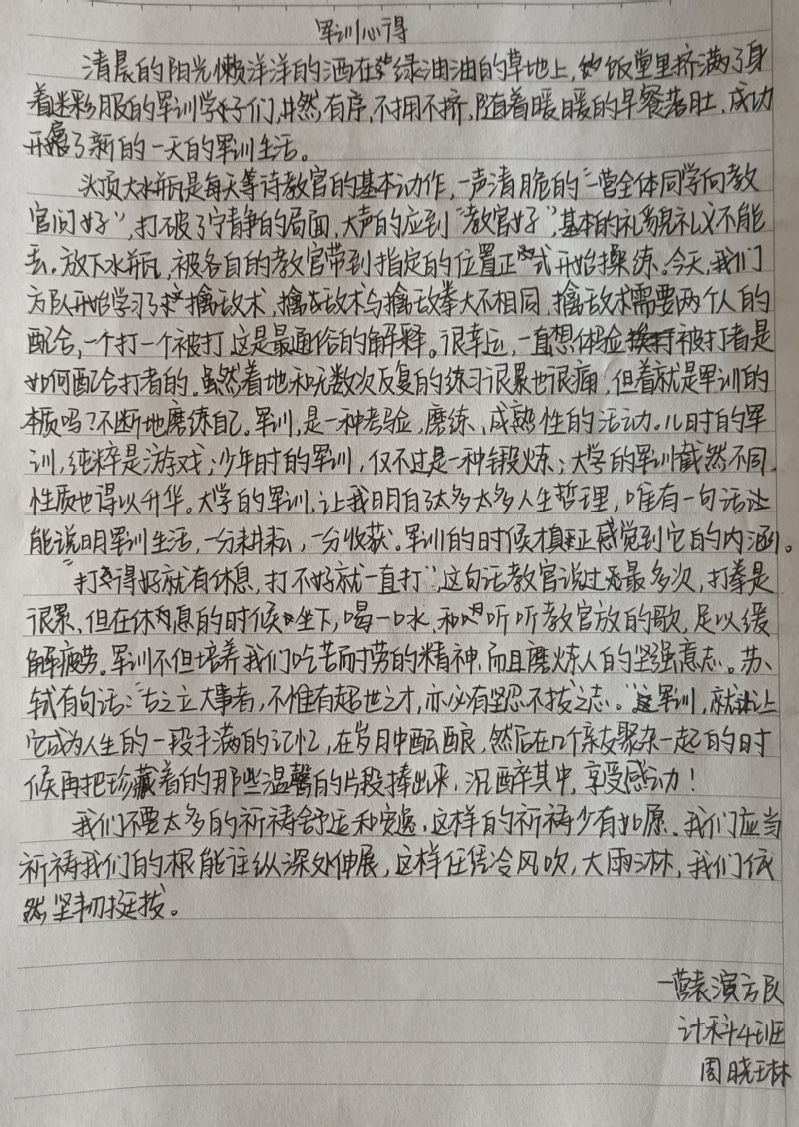 军训心得
清晨的阳光懒洋洋的洒在绿油油的草地上,饭堂里挤满了身
着迷彩服的军训学子们,井然有序,不拥不挤,随着暖暖的早餐落肚,成功
开启了新的一天的军训生活。
头顶大水瓶是每天等待教官的基本动作,一声清脆的“一营全体同学向教
官问好”,打破了宁静的局面,大声的应到“教官好”,基本的礼貌礼义不能
丢。放下水瓶,被各自的教官带到指定的位置正式开始操练。今天,我们
方队开始学习了擒敌术,擒敌术与擒敌拳大不相同,擒敌术需要两个人的
配合,一个打一个被打,这是最通俗的解释。很幸运,一直想体验被打者是
如何配合打者的。虽然着地和无数次反复的练习很累也很痛,但着就是军训的
本质吗?不断地磨练自己。军训,是一种考验,磨练、成熟性的活动。儿时的军
训,纯粹是游戏;少年时的军训,仅不过是一种锻炼;大学的军训截然不同,
性质也得以升华。大学的军训,让我明白了太多太多人生哲理,唯有一句话让
能说明军训生活,一分耕耘,一分收获。军训的时候才真正感觉到它的内涵。
“打得好就有休息,打不好就一直打”,这句话教官说过最多次,打拳是
很累,但在休息的时候坐下,喝一口水,和听听教官放的歌,足以缓
解疲劳。军训不但培养我们吃苦耐劳的精神,而且磨炼人的坚强意志。苏
轼有句话:“古之立大事者,不惟有超世之才,亦必有坚忍不拔之志。”军训,就让
它成为人生的一段丰满的记忆,在岁月中酝酿,然后在几个亲友聚杂一起的时
候再把珍藏着的那些温馨的片段捧出来,沉醉其中,享受感动!
我们不要太多的祈祷舒适和安逸,这样的祈祷少有如愿、我们应当
祈祷我们的根能往纵深处伸展,这样任凭冷风吹,大雨淋,我们依
然坚韧挺拔。
一营表演方队
计科4班
周晓琳